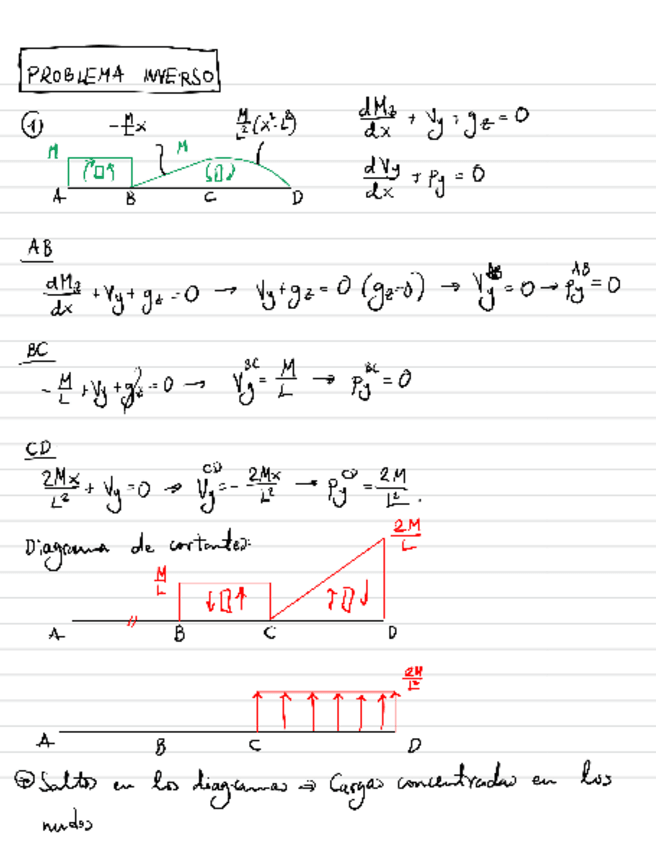 PROBLEMA INVERSO
① -M/L x M/L²(x²-L²) dMz/dx + Vy + gz = 0
M M dVy/dx + Py = 0
A B C D
AB
dMz/dx + Vy + gz = 0 → Vy + gz = 0 (gz=0) → Vy^AB = 0 → Py^AB = 0
BC
-M/L + Vy + gz = 0 → Vy^BC = M/L → Py^BC = 0
CD
2Mx/L² + Vy = 0 → Vy^CD = - 2Mx/L² → Py^CD = 2M/L².
Diagrama de cortantes: 2M/L
M/L
A B C D
2M/L²
A B C D
Saltos en los diagramas → Cargas concentradas en los
nudos